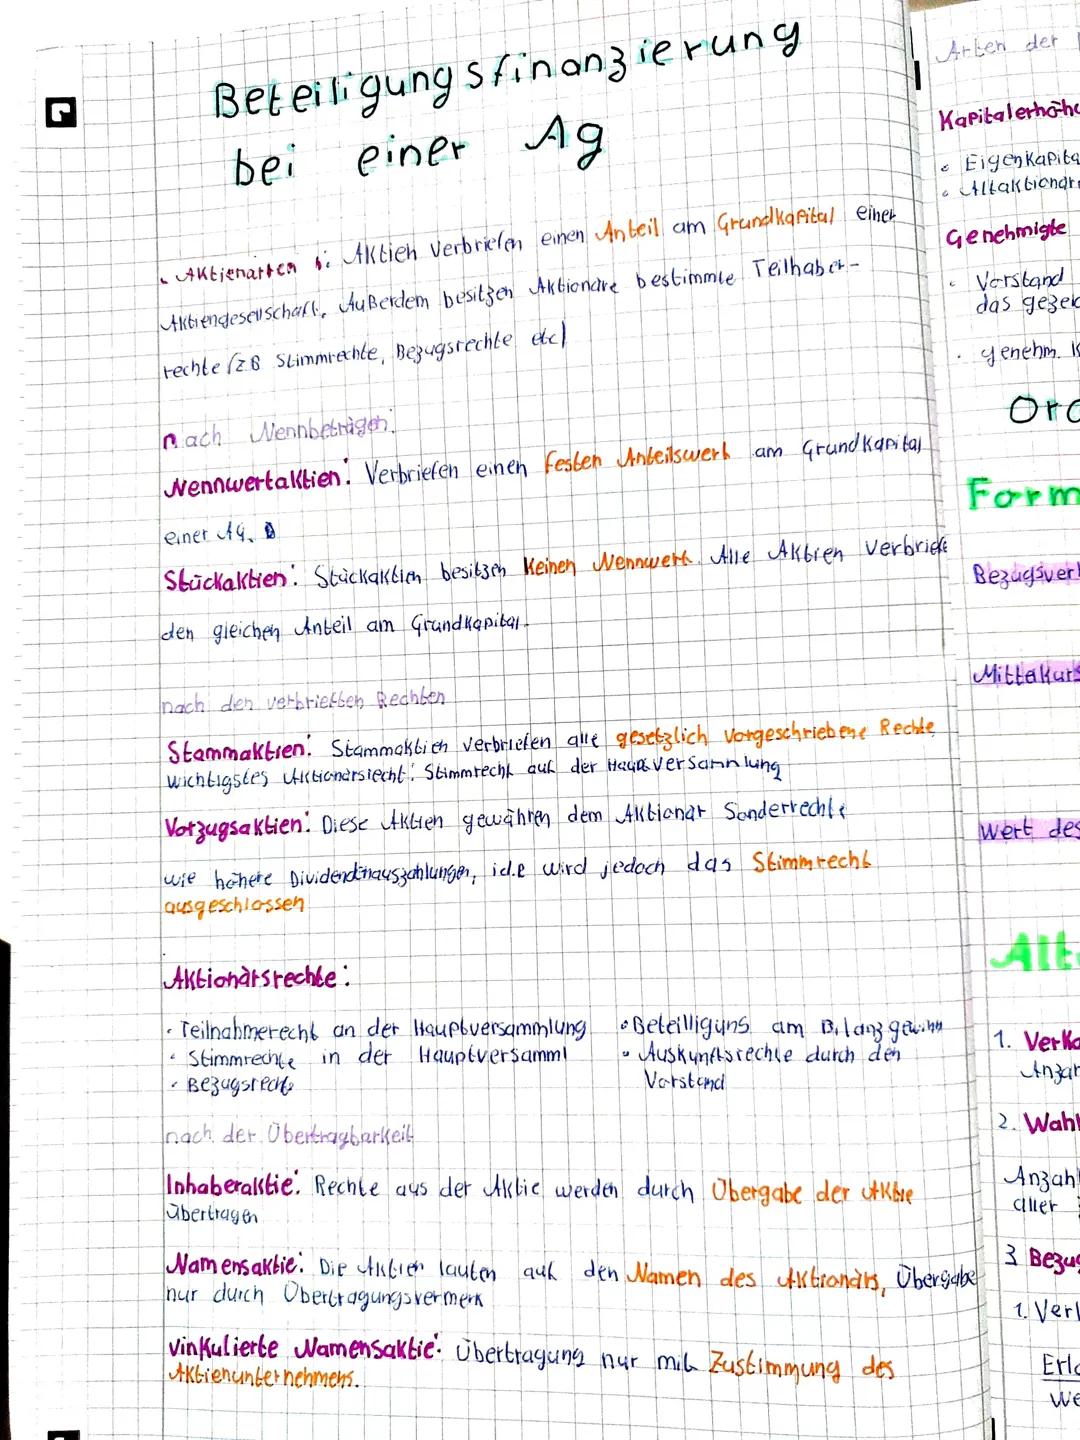 Beteiligungsfinanzierung
bei einer Ag
• Aktienarten : Aktien verbriefen einen Anteil am Grundkapital einer
Aktiengesellschaft. Außerdem besitzen Aktionäre bestimmte Teilhaber-
rechte (zB Stimmrechte, Bezugsrechte etc)
nach Nennbeträgen:
Nennwertaktien: Verbriefen einen festen Anteilswert am Grundkapital
einer AG.
Stückaktien: Stückaktien besitzen keinen Nennwert. Alle Aktien verbriefe
den gleichen Anteil am Grundkapital.
nach den verbrieften Rechten
Stammaktien: Stammaktien verbriefen alle gesetzlich vorgeschriebene Rechte,
wichtigstes Aktionärsrecht: Stimmrecht auf der Hauptversammlung
Vorzugsaktien: Diese Aktien gewähren dem Aktionär Sonderrechte
wie höhere Dividendenauszahlungen, id.R wird jedoch das Stimmrecht
ausgeschlossen
Aktionärsrechte:
• Teilnahmerecht an der Hauptversammlung
• Stimmrechte in der Hauptversamml
• Bezugsrechte
• Beteiligung am Bilanzgewinn
• Auskunftsrechte durch den
Vorstand
nach der Übertragbarkeit
Inhaberaktie: Rechte aus der Aktie werden durch Übergabe der Aktie
übertragen
Namensaktie: Die Aktien lauten auf den Namen des Aktionärs, Übergabe
nur durch Übertragungsvermerk
vinkulierte Namensaktie: Übertragung nur mit Zustimmung des
Aktienunternehmens.
Arten der
Kapitalerhöhu
• Eigenkapita
• Altaktionär
Genehmigte
• Vorstand
das gezei
• genehm. is
Ord
Form
Bezugsverh
Mittelkurs
Wert des
Alt
1. Verka
Anzah
2. Wahl
Anzahl
aller
3 Bezug
1. Verl
Erlö
We